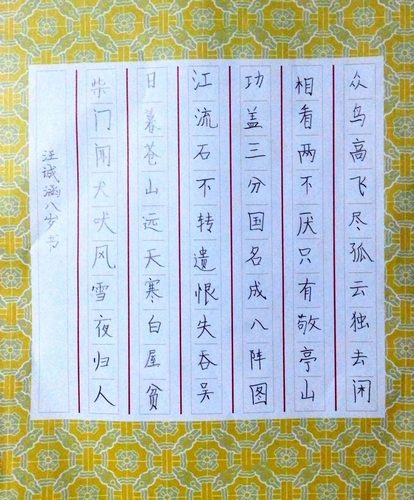 众鸟高飞尽孤云独去闲
相看两不厌只有敬亭山
功盖三分国名成八阵图
江流石不转遗恨失吞吴
日暮苍山远天寒白屋贫
柴门闻犬吠风雪夜归人
汪诚涵八岁书